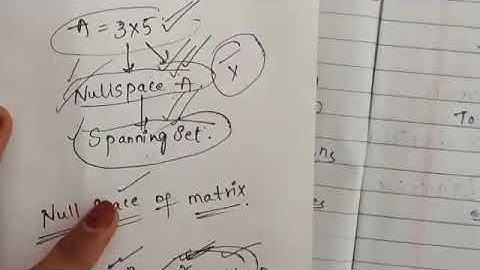 A = 3x5
Nullspace A.
x
Spanning Set:
Null Space of matrix.
To